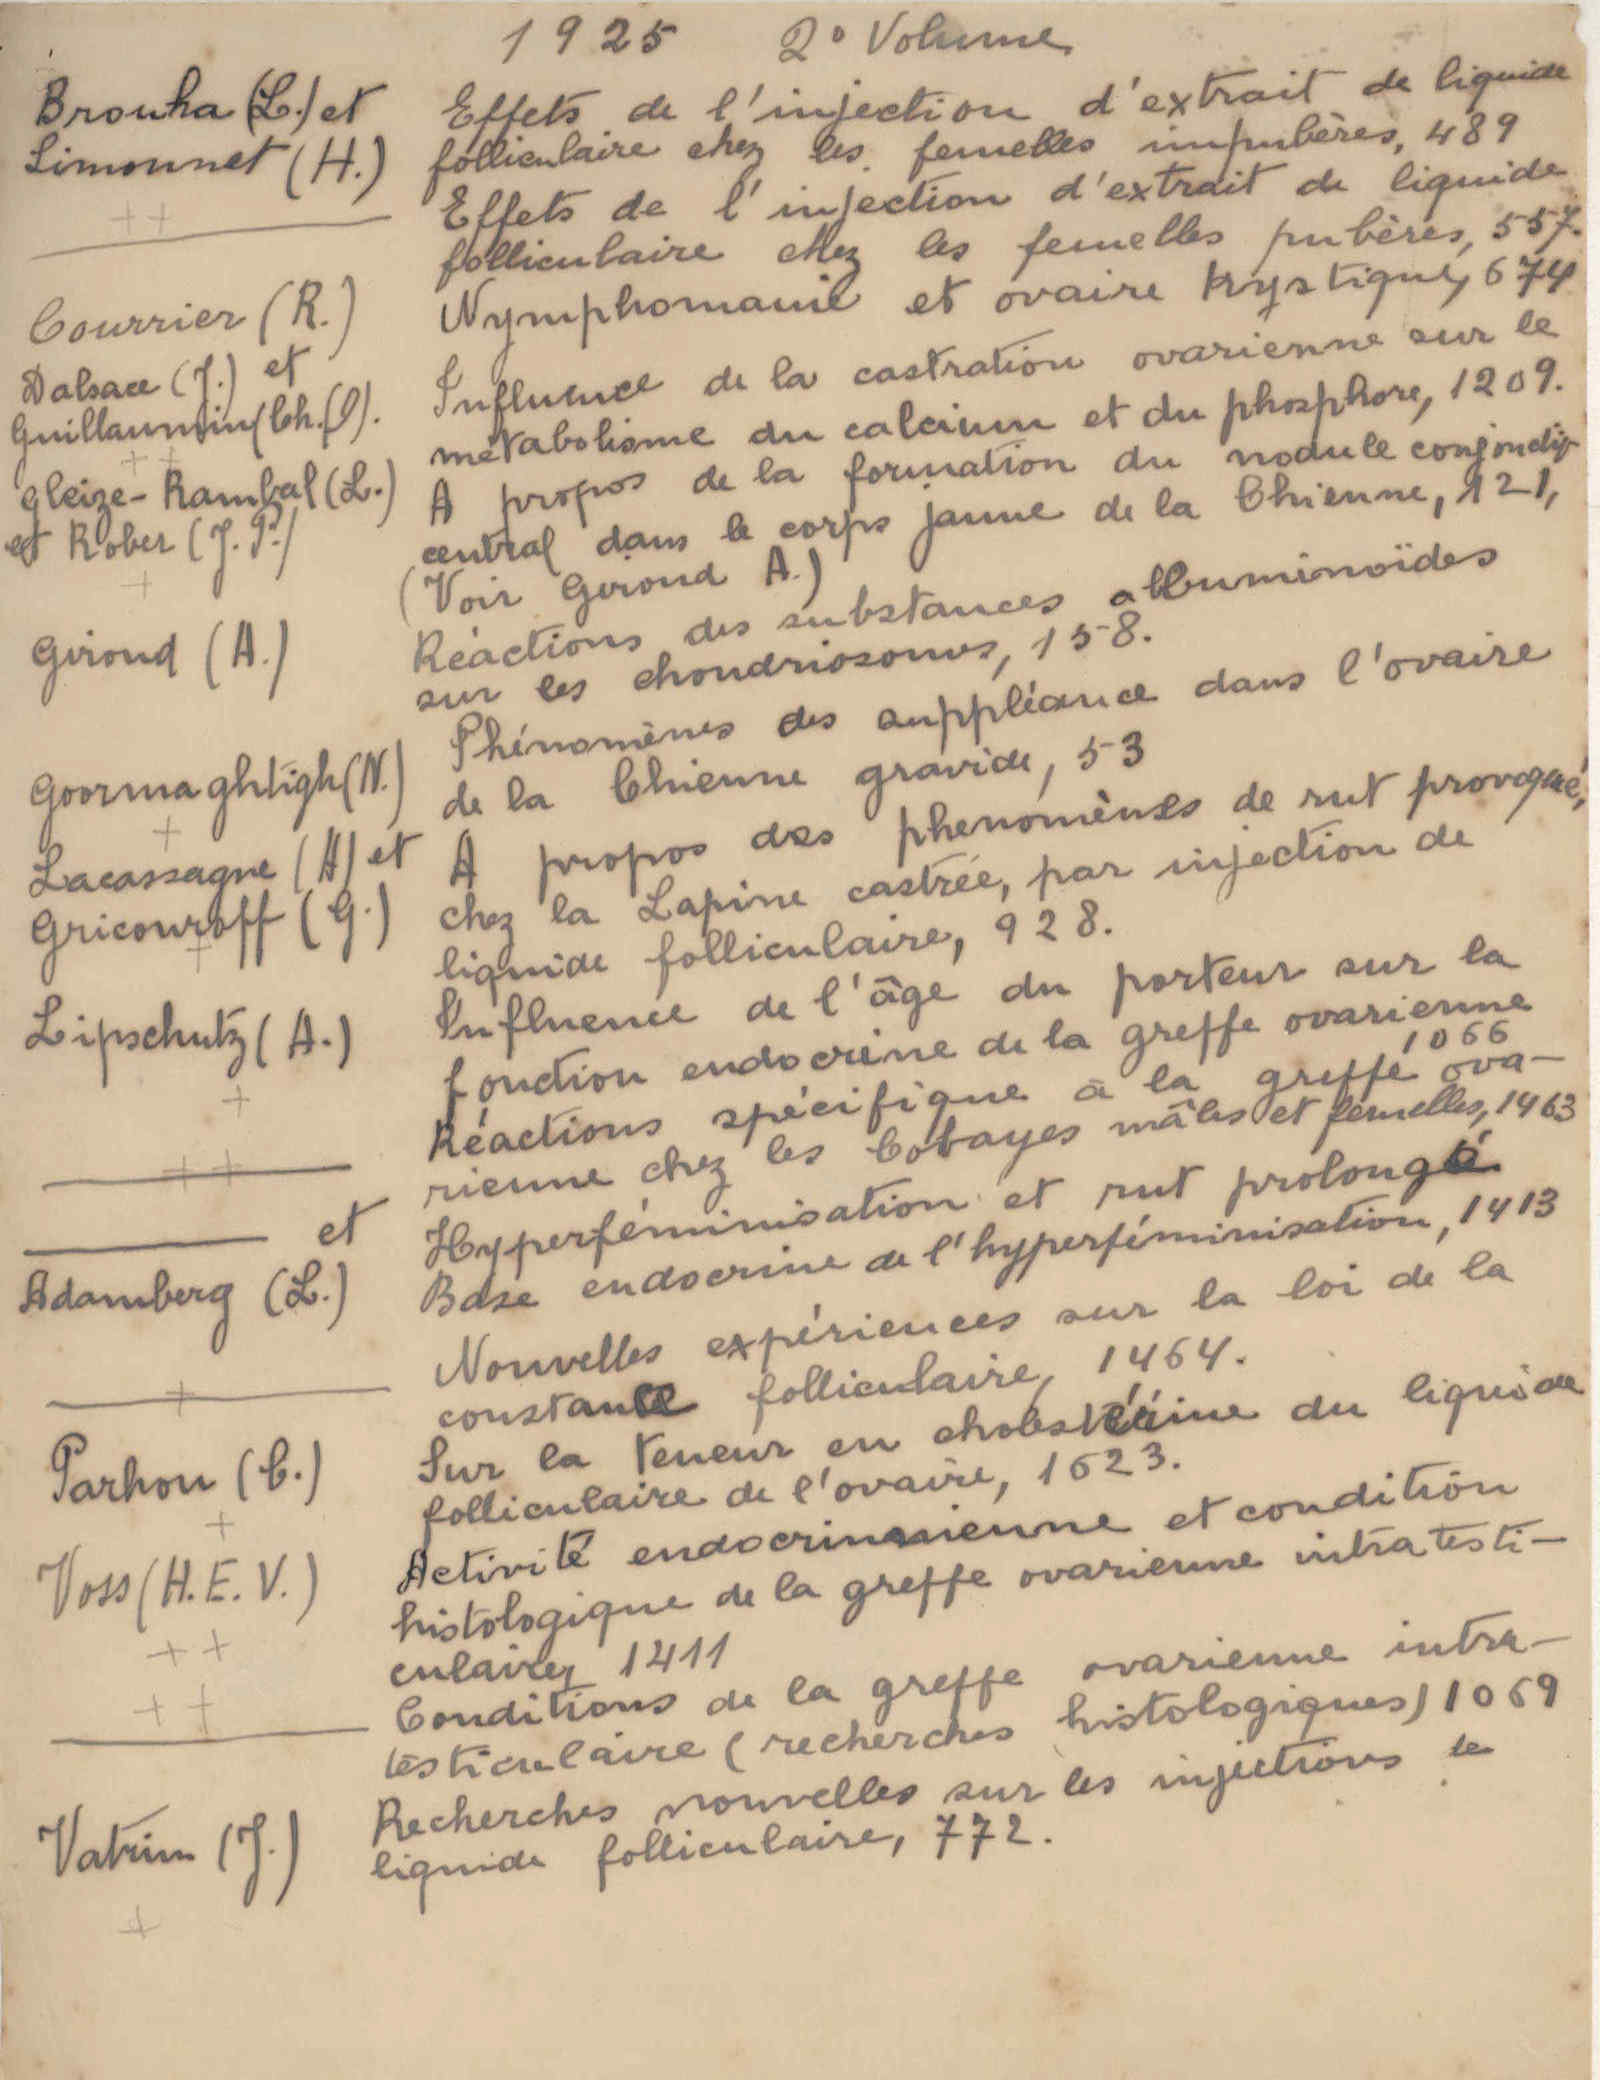 1925 2º Volume
Brouha (L.) et Effets de l'injection d'extrait de liquide
Limonnet (H.) folliculaire chez les femelles impubères, 489
++ Effets de l'injection d'extrait de liquide
folliculaire chez les femelles pubères, 557.
Courrier (R.) Nymphomanie et ovaire kystique, 674
Dalsace (J.) et Influence de la castration ovarienne sur le
Guillaumin (Ch. O). métabolisme du calcium et du phosphore, 1209.
++
Gleize-Rambal (L.) A propos de la formation du nodule conjonctif
et Rober (J. P.) central dans le corps jaune de la Chienne, 121,
+ (Voir Giroud A.)
Giroud (A.) Réactions des substances albuminoïdes
sur les chondriosomes, 158.
Goormaghtigh (N.) Phénomènes des suppléance dans l'ovaire
+ de la Chienne gravide, 53
Lacassagne (A) et A propos des phenomènes de rut provoqué,
Gricouroff (G.) chez la Lapine castrée, par injection de
+ liquide folliculaire, 928.
Lipschutz (A.) Influence de l'âge du porteur sur la
+ fonction endocrine de la greffe ovarienne
1066
Réactions spécifique à la greffe ova-
++ rienne chez les Cobayes mâles et femelles, 1463
et Hyperféminisation et rut prolongé
Adamberg (L.) Base endocrine de l'hyperféminisation, 1413
Nouvelles expériences sur la loi de la
+ constante folliculaire, 1464.
Parhon (C.) Sur la teneur en cholestérine du liquide
+ folliculaire de l'ovaire, 1623.
Voss (H. E. V.) Activité endocrinienne et condition
++ histologique de la greffe ovarienne intratesti-
culaire, 1411
++ Conditions de la greffe ovarienne intra-
testiculaire (recherches histologiques) 1069
Vatrin (J.) Recherches nouvelles sur les injections de
+ liquide folliculaire, 772.